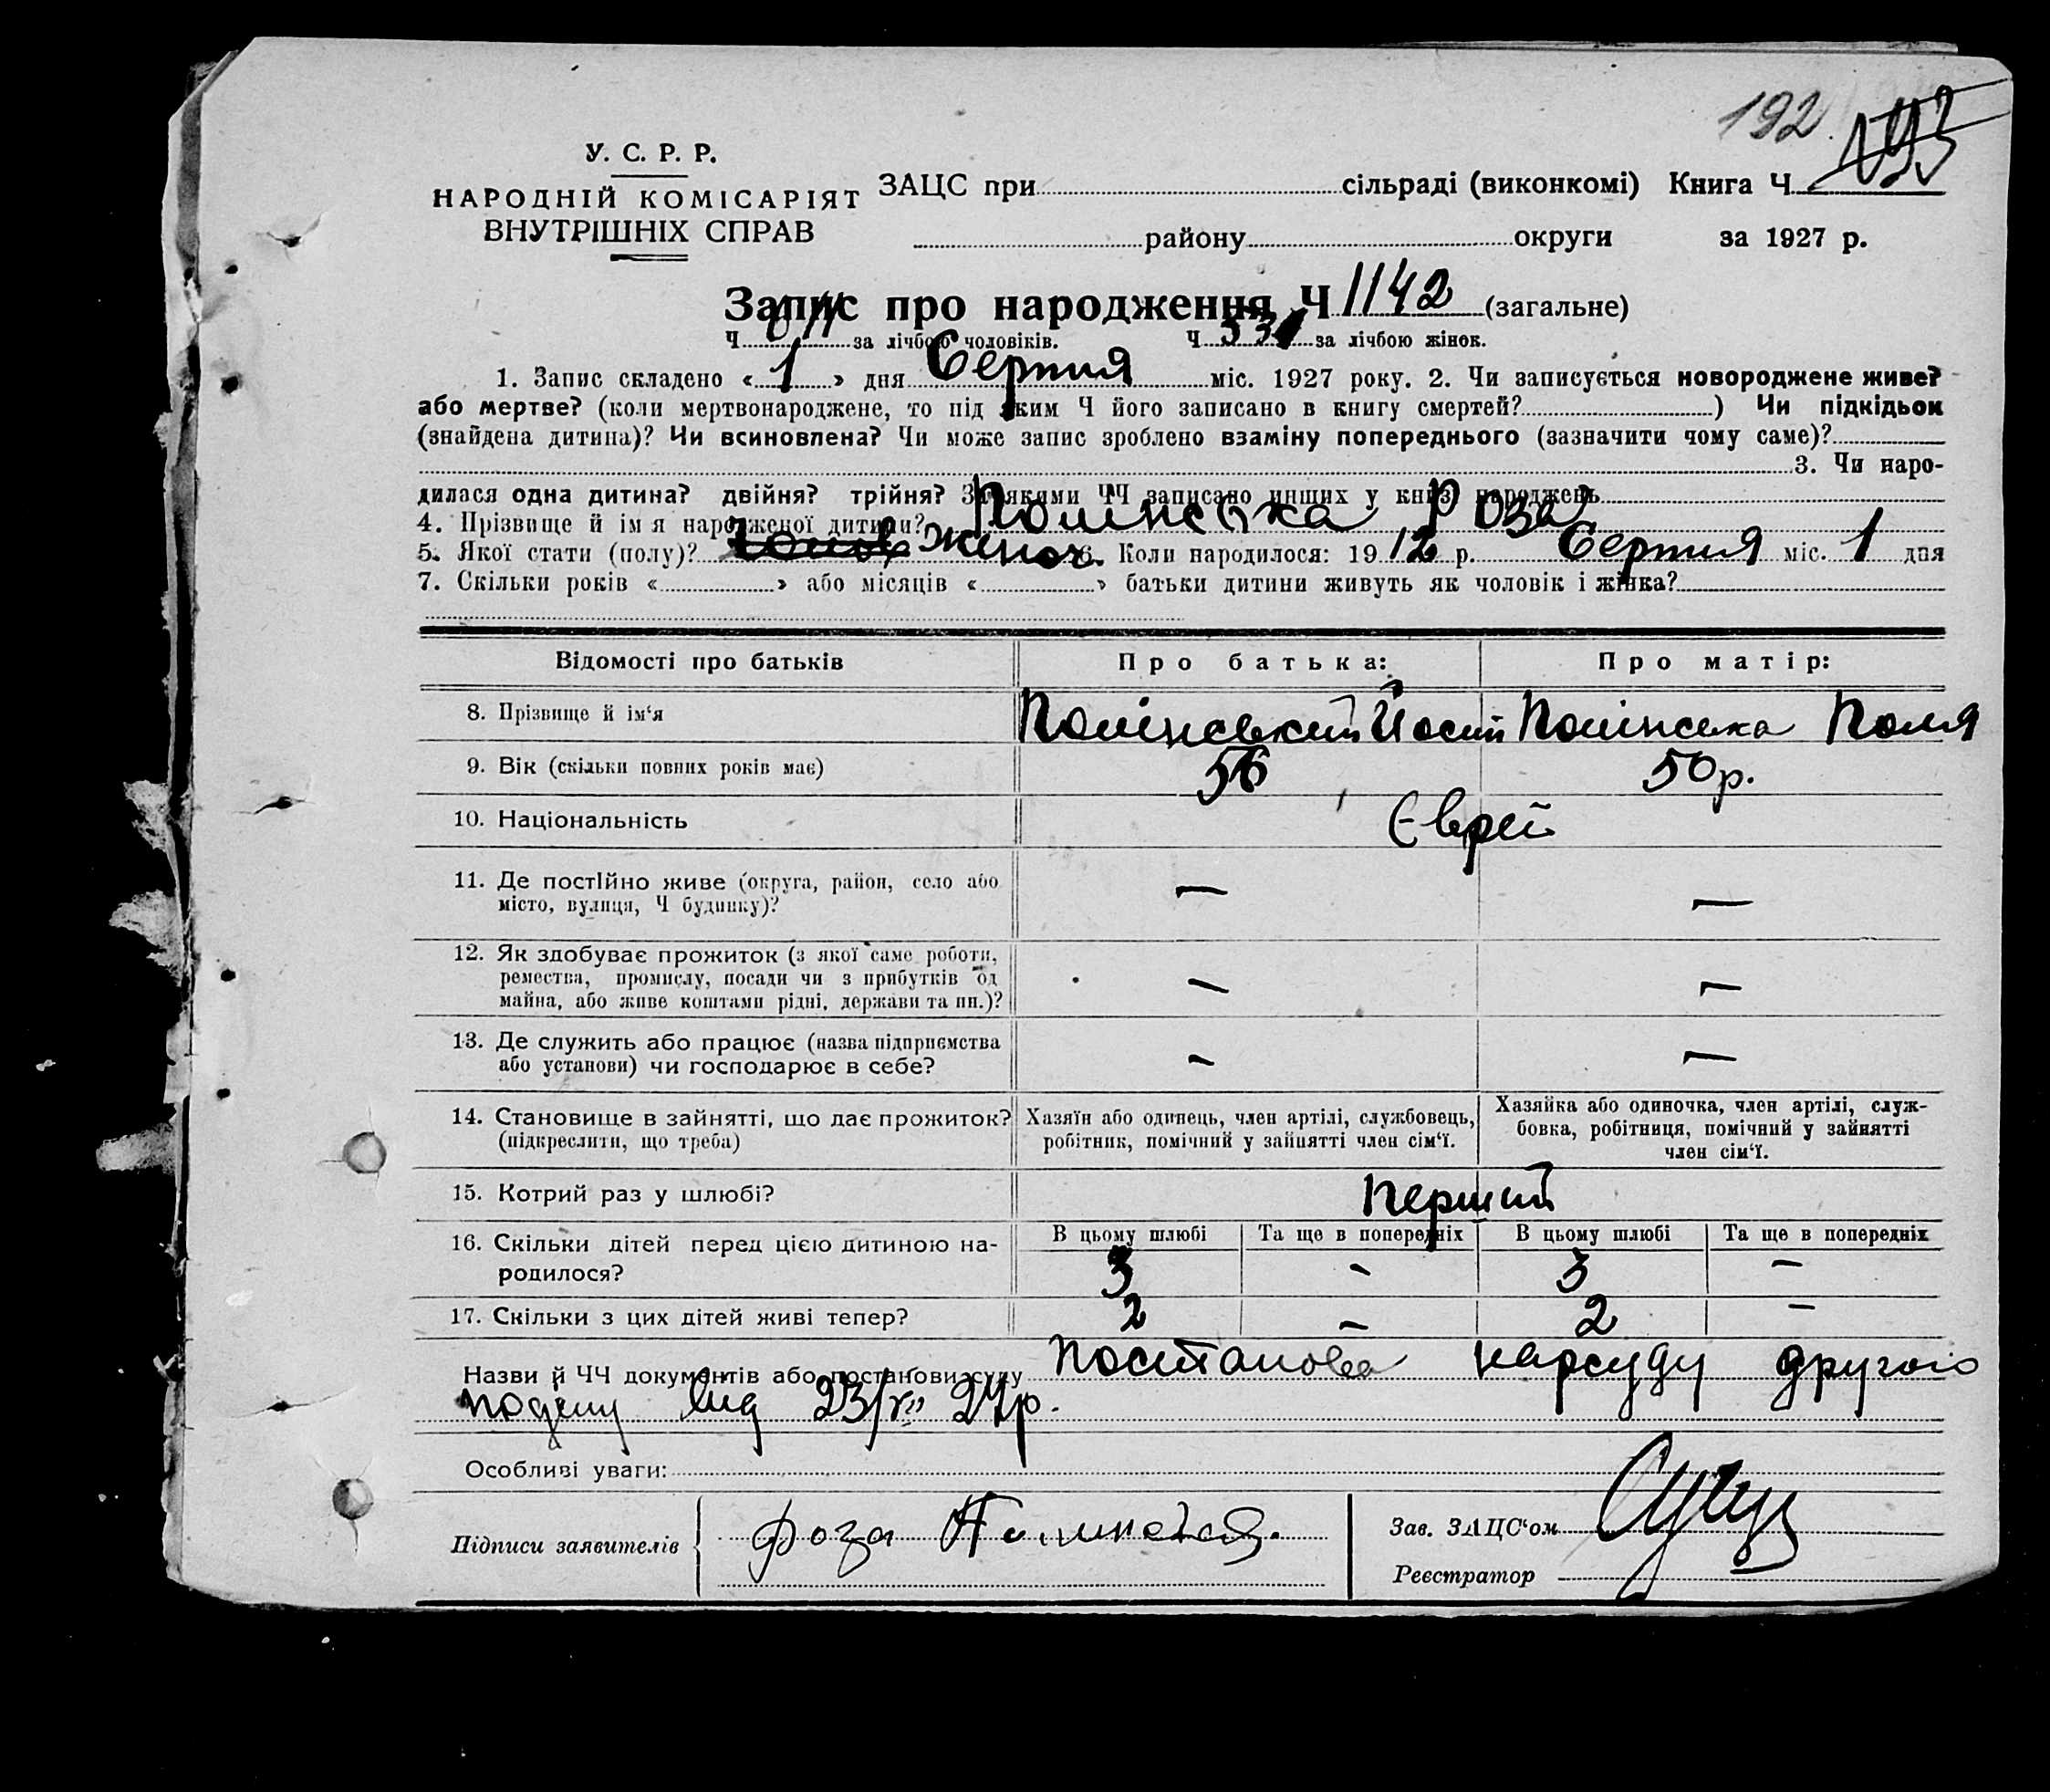 192
193
У. С. Р. Р.
НАРОДНІЙ КОМІСАРІЯТ
ВНУТРІШНІХ СПРАВ
ЗАЦС при сільраді (виконкомі) Книга Ч
району округи за 1927 р.
Запис про народження Ч 1142 (загальне)
Ч 611 за лічбою чоловіків. Ч 531 за лічбою жінок.
1. Запис складено « 1 » дня Серпня міс. 1927 року. 2. Чи записується новороджене живе?
або мертве? (коли мертвонароджене, то під яким Ч його записано в книгу смертей? ) Чи підкідьок
(знайдена дитина)? Чи всиновлена? Чи може запис зроблено взаміну попереднього (зазначити чому саме)?
3. Чи наро-
дилася одна дитина? двійня? трійня? За якими ЧЧ записано инших у книзі народжень
4. Прізвище й ім я народженої дитини? Полінська Роза
5. Якої стати (полу)? жіноч. 6. Коли народилося: 1912 р. Серпня міс. 1 дня
7. Скільки років « » або місяців « » батьки дитини живуть як чоловік і жінка?
Відомості про батьків Про батька: Про матір:
8. Прізвище й ім‘я Полінський Йосип Полінська Поля
9. Вік (скільки повних років має) 56 50 р.
10. Національність Єврей
11. Де постійно живе (округа, район, село або — —
місто, вулиця, Ч будинку)?
12. Як здобуває прожиток (з якої саме роботи,
ремества, промислу, посади чи з прибутків од — —
майна, або живе коштами рідні, держави та ин.)?
13. Де служить або працює (назва підприємства — —
або установи) чи господарює в себе?
14. Становище в зайнятті, що дає прожиток?
(підкреслити, що треба)
Хазяїн або одинець, член артілі, службовець,
робітник, помічний у зайнятті член сім‘ї.
Хазяйка або одиночка, член артілі, служ-
бовка, робітниця, помічний у зайнятті
член сім‘ї.
15. Котрий раз у шлюбі? Перший
В цьому шлюбі Та ще в попередніх В цьому шлюбі Та ще в попередніх
16. Скільки дітей перед цією дитиною на-
родилося? 3 - 3 —
17. Скільки з цих дітей живі тепер? 2 — 2 —
Назви й ЧЧ документів або постанови суду Постанова нарсуду другого
поділу від 23/VII 27р.
Особливі уваги:
Підписи заявителів Роза Полинская.
Зав. ЗАЦС‘ом
Реєстратор